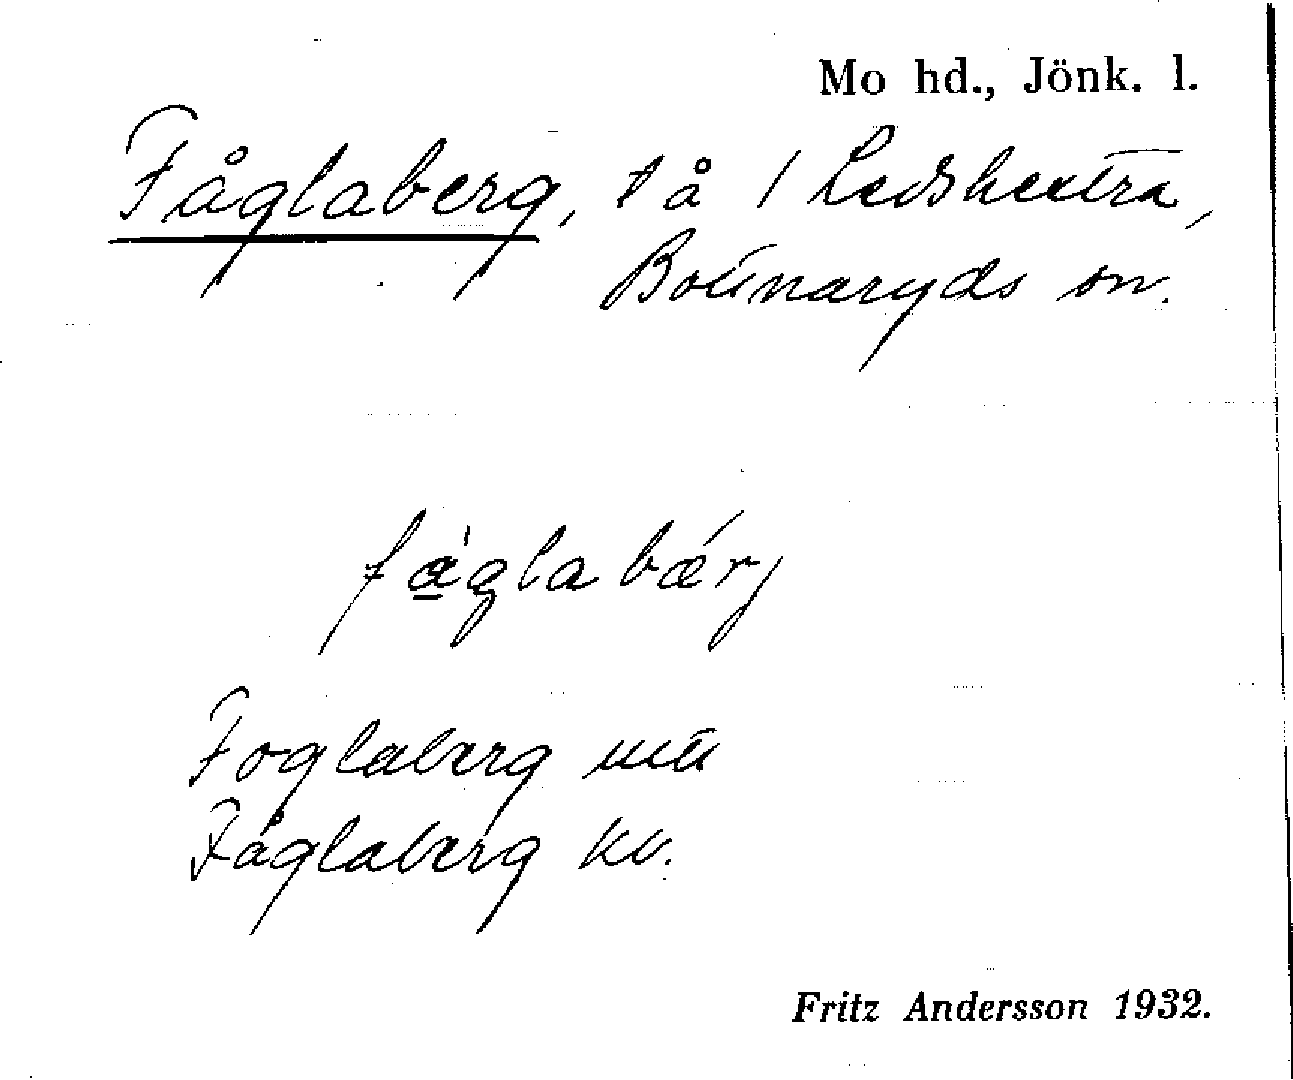 Mo hd., Jönk. l.
Fåglaberg, t å 1 Ledshestra,
Bottnaryds sn.
fåglabærj
Foglaberg
Fåglaberg kv.
Fritz Andersson 1932.